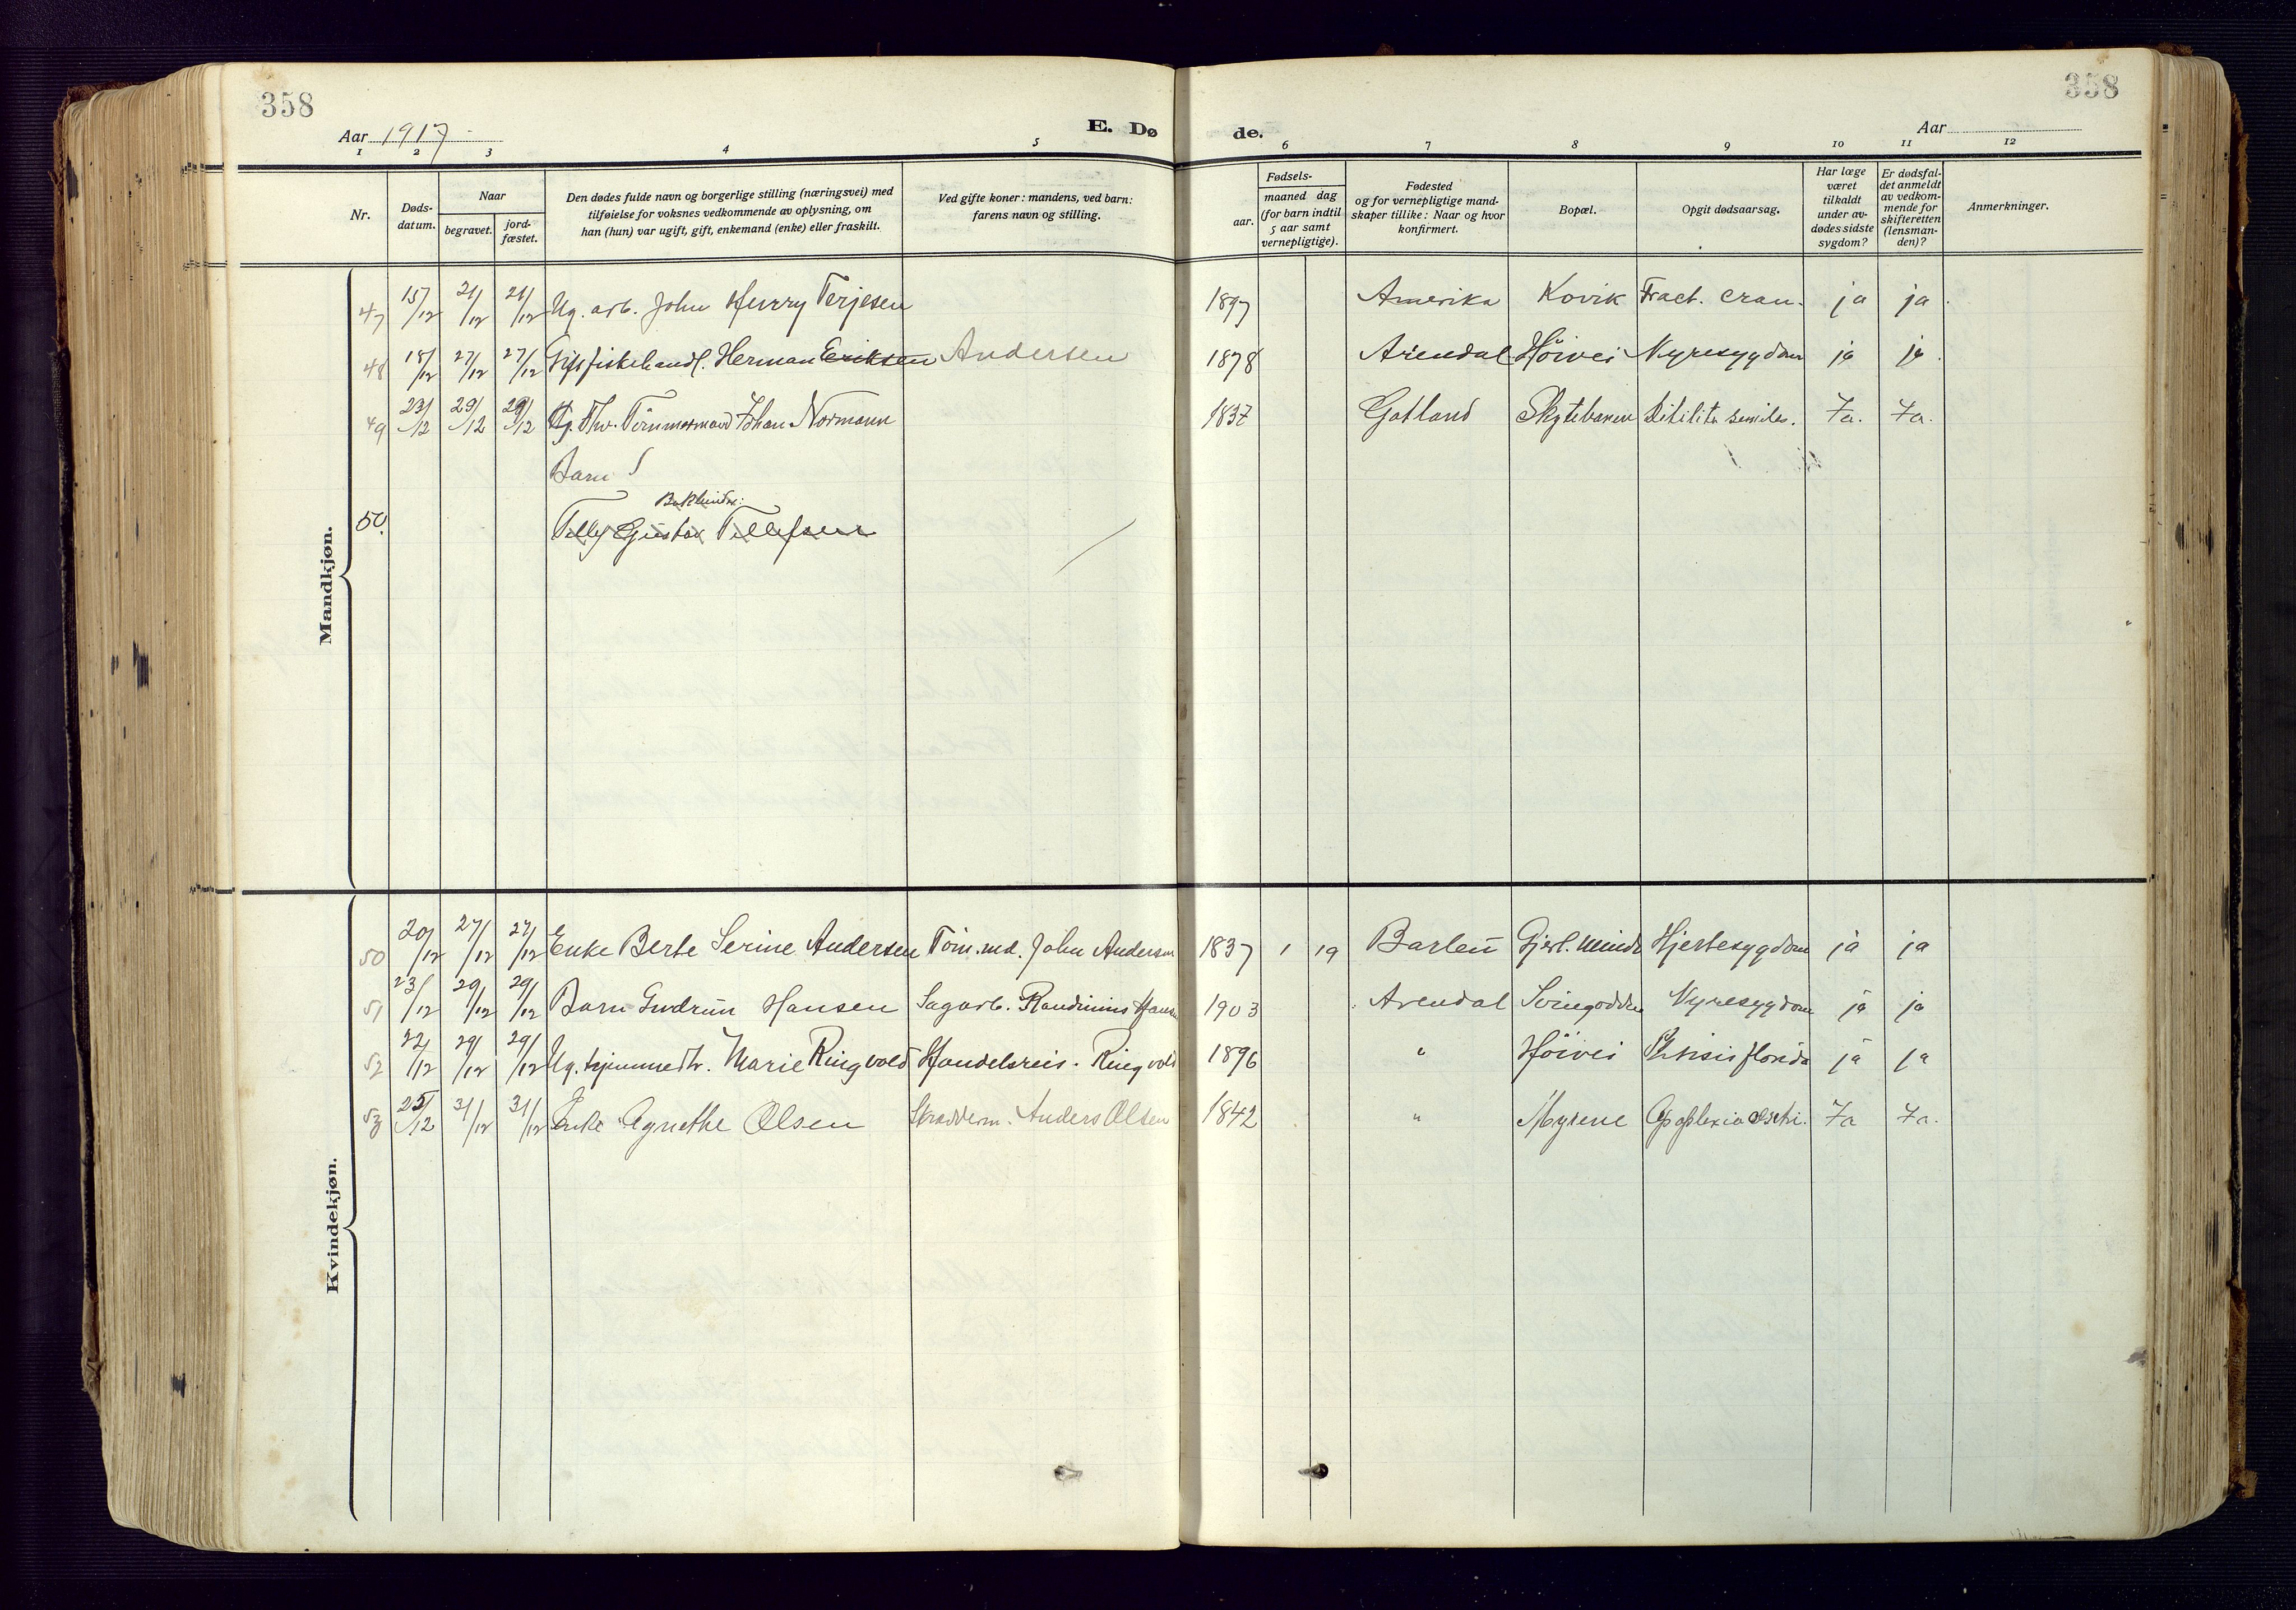 358
358
Aar 1917
E. Dø
de.
Aar
1 2 3 4 5 6 7 8 9 10 11 12
Nr.
Døds-datum.
Naar
begravet.
jord-fæstet.
Den dødes fulde navn og borgerlige stilling (næringsvei) med
tilføielse for voksnes vedkommende av oplysning, om
han (hun) var ugift, gift, enkemand (enke) eller fraskilt.
Ved gifte koner: mandens, ved barn:
farens navn og stilling.
Fødsels-
aar.
maaned dag
(for barn indtil
5 aar samt
vernepligtige).
Fødested
og for vernepligtige mand-
skaper tillike: Naar og hvor
konfirmert.
Bopæl.
Opgit dødsaarsag.
Har læge
været
tilkaldt
under av-
dødes sidste
sygdom?
Er dødsfal-
det anmeldt
av vedkom-
mende for
skifteretten
(lensman-
den)?
Anmerkninger.
Mandkjøn.
47 15/12 21/12 21/12 Ug. arb. John Hurry Terjesen 1897 Amerika Kovik Fract. cran. ja ja
48 18/12 27/12 27/12 Gift fiskehandl. Herman Eriksen Andersen 1878 Arendal Høivei Nyresygdom ja ja
49 23/12 29/12 29/12 Tømmermand Johan Normann 1837 Gotland Skytebanen ja. ja.
Barn
50. Gustav Tellefsen
Kvindekjøn.
50 20/12 27/12 27/12 Enke Berte Serine Andersen Tøm.md. John Andersen 1837 1 19 Barbu Gjerl. minde Hjertesygdom ja ja
51 23/12 29/12 29/12 Barn Gudrun Hansen Sagarb. Randinius Hansen 1903 Arendal Svinodden Nyresygdom ja ja
52 22/12 29/12 29/12 Ug. hjemmedtr. Marie Ringvold Handelsreis. Ringvold 1896 " Høivei Phtisis florida ja ja
53 25/12 31/12 31/12 Enke Agnethe Olsen Skrædderm. Anders Olsen 1842 " Myrene Apoplexia ja ja.